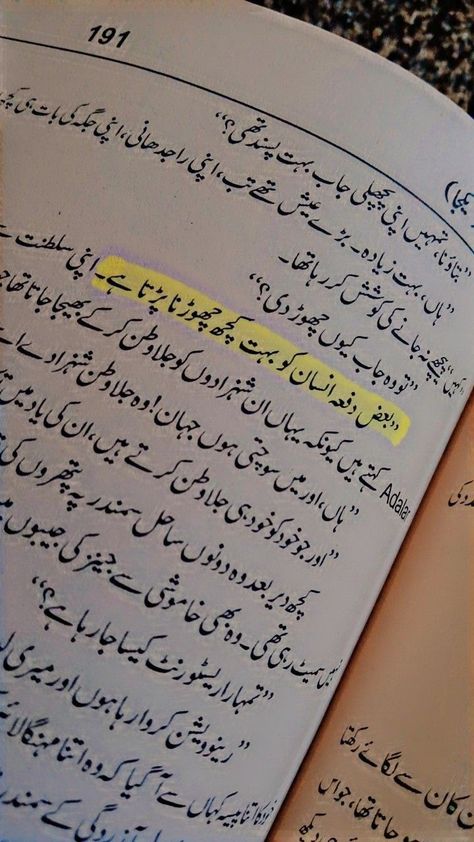 191
یکجا)
بتاؤ نا، تمہیں اپنی پچھلی جاب بہت پسند تھی؟“
”ہاں، بہت زیادہ۔ بڑے عیش تھے تب، اپنی راجدھانی، اپنی جگہ کی بات ہی کچھ
پیچھے نہ جانے کی کوشش کر رہا تھا۔
”تو وہ جاب کیوں چھوڑ دی؟“
”بعض دفعہ انسان کو بہت کچھ چھوڑنا پڑتا ہے۔ اپنی سلطنت سے
Adalar کہتے ہیں کیونکہ یہاں ان شہزادوں کو جلا وطن کر کے بھیجا جاتا تھا
”ہاں، اور میں سوچتی ہوں جہان! وہ جلا وطن شہزادے
”اور جو خود کو خود ہی جلا وطن کرتے ہیں، ان کی یاد میں
کچھ دیر بعد وہ دونوں ساحل سمندر پہ پتھروں کی
سمیٹ رہی تھی۔ وہ بھی خاموشی سے جینز کی جیبوں
”تمہارا ریسٹورنٹ کیسا جا رہا ہے؟“
”رینوویشن کروا رہا ہوں اور میری
اتنا پیسہ کہاں سے آ گیا کہ وہ اتنا مہنگا
آزردگی کے سمندر
کان سے لگائے رکھتا
ہو جاتا تھا، جو اس